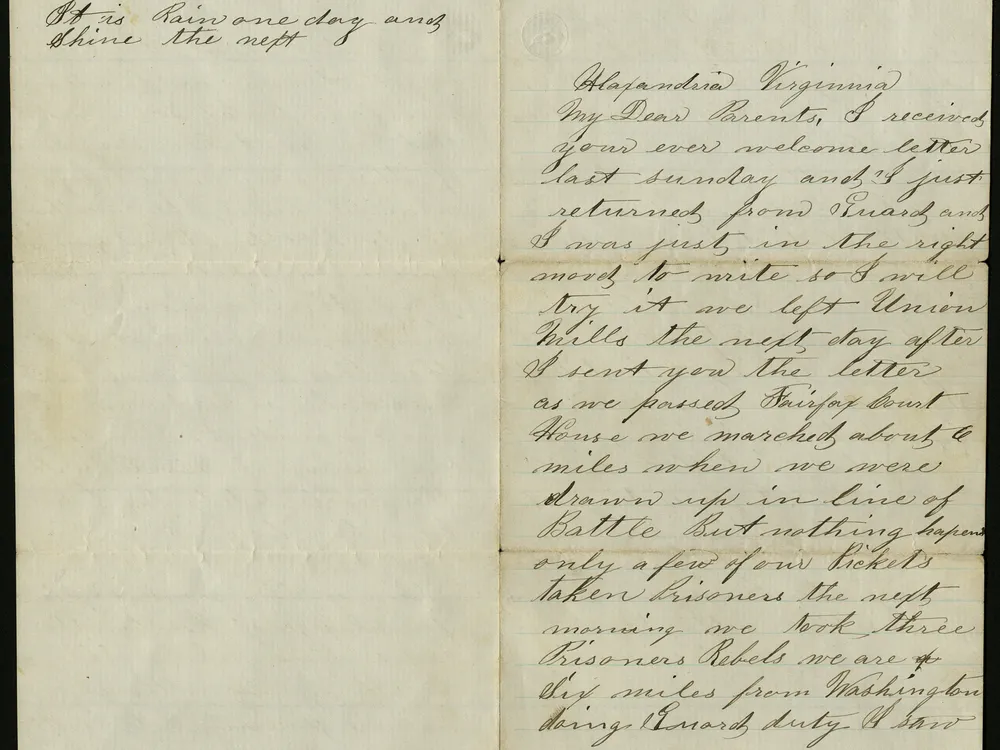 It is Rain one day and
Shine the next
Alaxandria Virginnia
My Dear Parents, I received
your ever welcome letter
last sunday and I just
returned from Guard and
I was just in the right
mood to write so I will
try it we left Union
Mills the next day after
I sent you the letter
as we passed Fairfax Court
House we marched about 6
miles when we were
drawn up in line of
Battle But nothing hapend
only a few of our Pickets
taken Prisoners the next
morning we took three
Prisoners Rebels we are
Six miles from Washington
doing Guard duty I saw